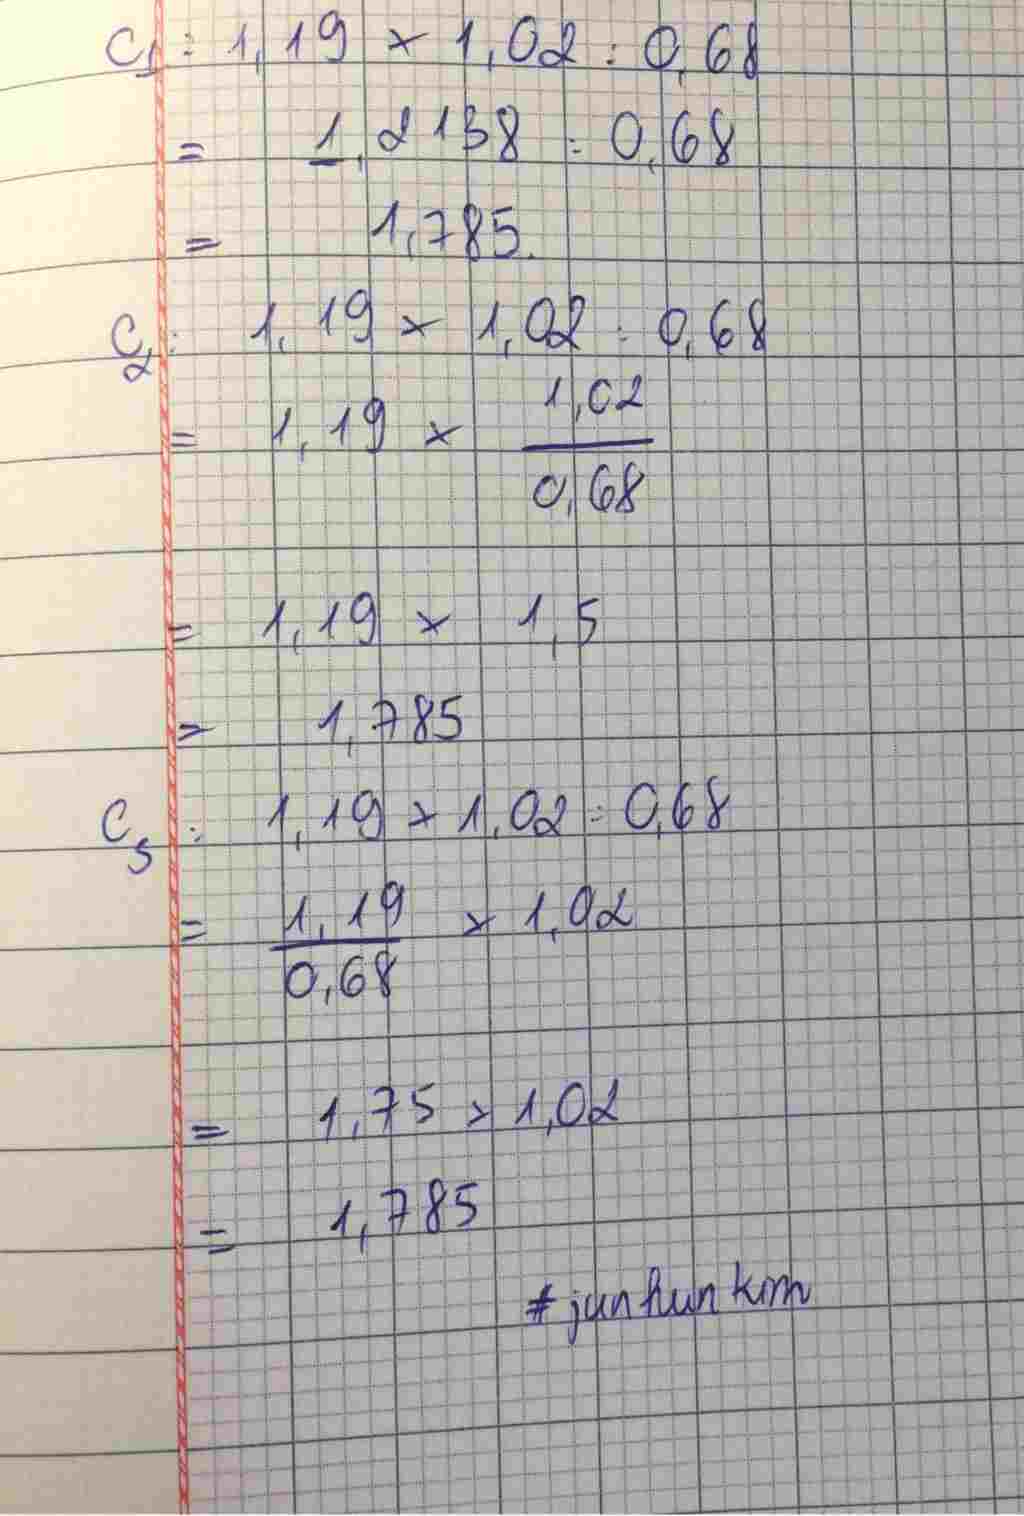 C1: 1,19 × 1,02 : 0,68
= 1,2138 : 0,68
= 1,785.
C2: 1,19 × 1,02 : 0,68
= 1,19 × 1,02/0,68
= 1,19 × 1,5
= 1,785
C3: 1,19 × 1,02 : 0,68
= 1,19/0,68 × 1,02
= 1,75 × 1,02
= 1,785
# junhunkm